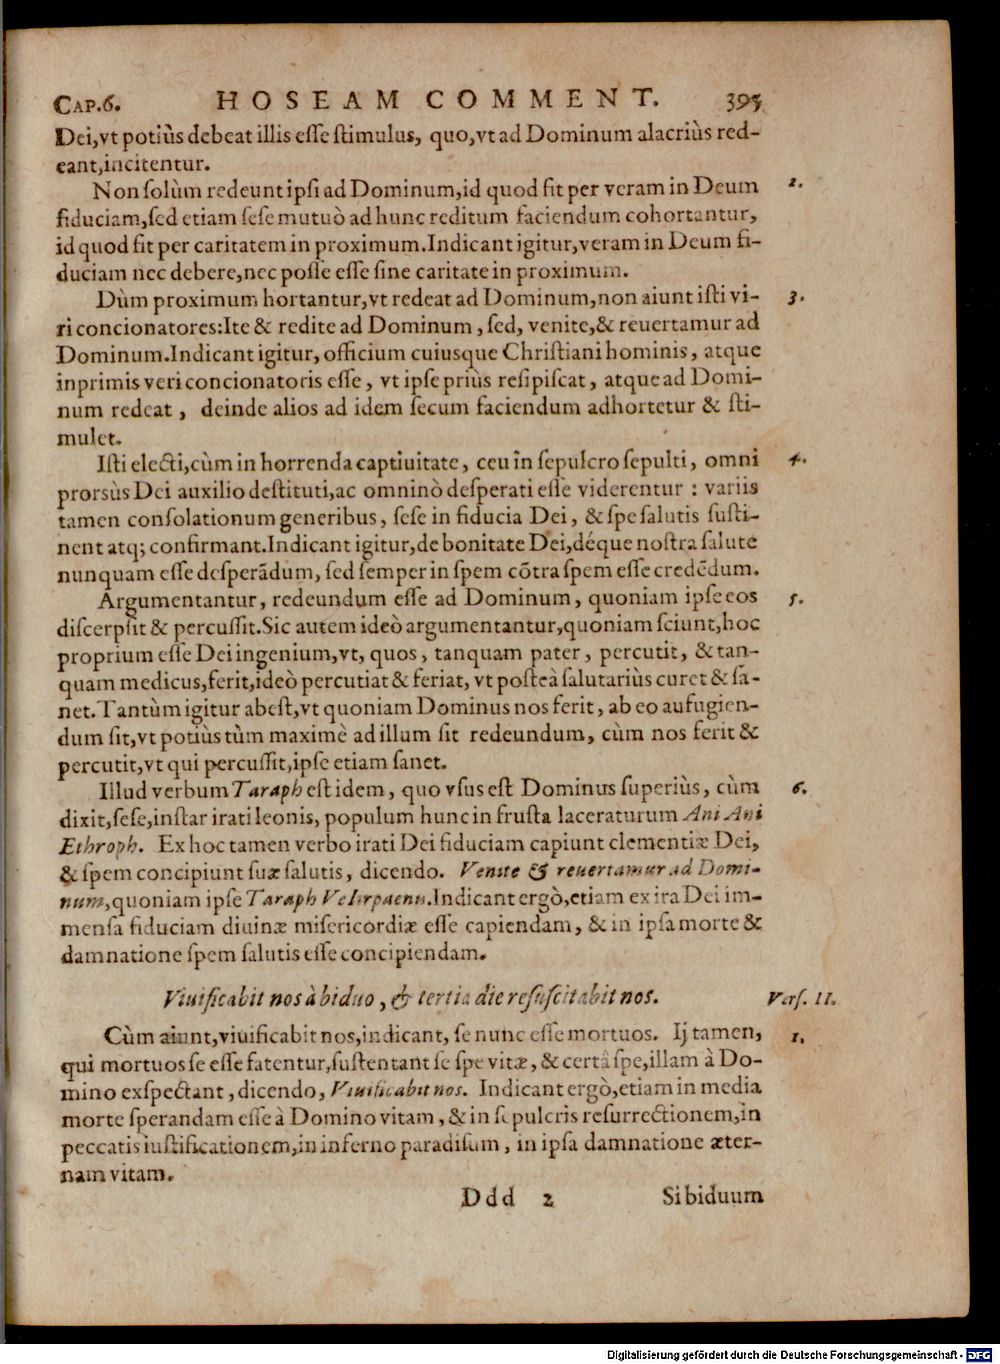 CAP.6. HOSEAM COMMENT. 395
Dei,vt potiùs debeat illis esse stimulus, quo,vt ad Dominum alacriùs red-
eant,incitentur.
Non solùm redeunt ipsi ad Dominum,id quod fit per veram in Deum 2.
fiduciam,sed etiam sese mutuò ad hunc reditum faciendum cohortantur,
id quod fit per caritatem in proximum.Indicant igitur,veram in Deum fi-
duciam nec debere,nec posse esse sine caritate in proximum.
Dùm proximum hortantur,vt redeat ad Dominum,non aiunt isti vi- 3.
ri concionatores:Ite & redite ad Dominum, sed, venite,& reuertamur ad
Dominum.Indicant igitur, officium cuiusque Christiani hominis, atque
inprimis veri concionatoris esse, vt ipse priùs resipiscat, atque ad Domi-
num redeat, deinde alios ad idem secum faciendum adhortetur & sti-
mulet.
Isti electi,cùm in horrenda captiuitate, ceu in sepulcro sepulti, omni 4.
prorsùs Dei auxilio destituti,ac omninò desperati esse viderentur : variis
tamen consolationum generibus, sese in fiducia Dei, & spe salutis susti-
nent atq; confirmant.Indicant igitur,de bonitate Dei,déque nostra salute
nunquam esse desperādum, sed semper in spem cōtra spem esse credēdum.
Argumentantur, redeundum esse ad Dominum, quoniam ipse eos 5.
discerpsit & percussit.Sic autem ideò argumentantur,quoniam sciunt,hoc
proprium esse Dei ingenium,vt, quos, tanquam pater, percutit, & tan-
quam medicus,ferit,ideò percutiat & feriat, vt posteà salutariùs curet & sa-
net.Tantùm igitur abest,vt quoniam Dominus nos ferit, ab eo aufugien-
dum sit,vt potiùs tùm maximè ad illum sit redeundum, cùm nos ferit &
percutit,vt qui percussit,ipse etiam sanet.
Illud verbum Taraph est idem, quo vsus est Dominus superiùs, cùm 6.
dixit,sese,instar irati leonis, populum hunc in frusta laceraturum Ani Ani
Ethroph. Ex hoc tamen verbo irati Dei fiduciam capiunt clementiæ Dei,
& spem concipiunt suæ salutis, dicendo. Venite & reuertamur ad Domi-
num,quoniam ipse Taraph VeIirpaenu.Indicant ergò,etiam ex ira Dei im-
mensa fiduciam diuinæ misericordiæ esse capiendam, & in ipsa morte &
damnatione spem salutis esse concipiendam.
Viuificabit nos à biduo, & tertia die resuscitabit nos. Vers. II.
Cùm aiunt,viuificabit nos,indicant, se nunc esse mortuos. Ij tamen, 1.
qui mortuos se esse fatentur,sustentant se spe vitæ, & certâ spe,illam à Do-
mino exspectant, dicendo, Viuificabit nos. Indicant ergò,etiam in media
morte sperandam esse à Domino vitam, & in sepulcris resurrectionem,in
peccatis iustificationem,in inferno paradisum, in ipsa damnatione æter-
nam vitam.
Ddd 2 Si biduum
Digitalisierung gefördert durch die Deutsche Forschungsgemeinschaft - DFG